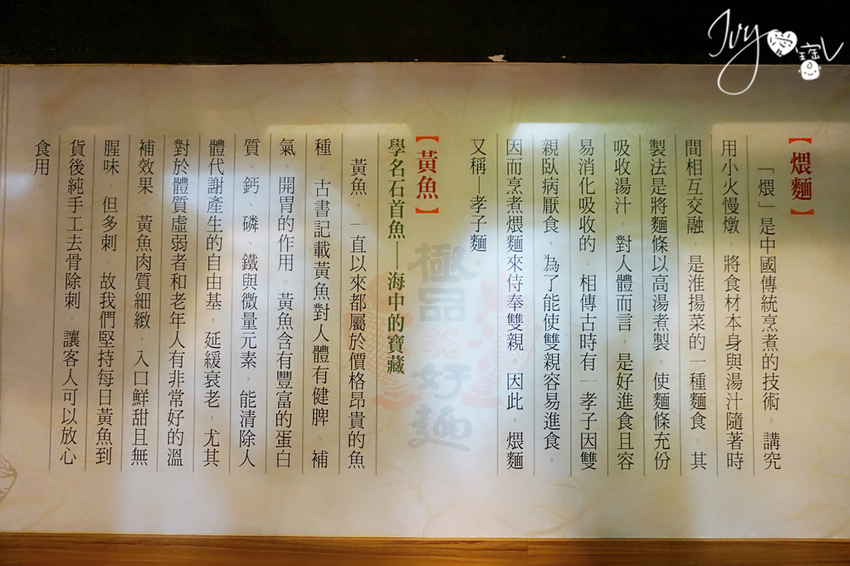 【煨麵】
「煨」是中國傳統烹煮的技術，講究
用小火慢燉，將食材本身與湯汁隨著時
間相互交融，是淮揚菜的一種麵食。其
製法是將麵條以高湯煮製，使麵條充份
吸收湯汁，對人體而言，是好進食且容
易消化吸收的。相傳古時有一孝子因雙
親臥病厭食，為了能使雙親容易進食，
因而烹煮煨麵來侍奉雙親。因此，煨麵
又稱—孝子麵。
【黃魚】
學名石首魚——海中的寶藏
黃魚，一直以來都屬於價格昂貴的魚
種。古書記載黃魚對人體有健脾、補
氣、開胃的作用。黃魚含有豐富的蛋白
質、鈣、磷、鐵與微量元素，能清除人
體代謝產生的自由基，延緩衰老，尤其
對於體質虛弱者和老年人有非常好的溫
補效果。黃魚肉質細緻，入口鮮甜且無
腥味，但多刺。故我們堅持每日黃魚到
貨後純手工去骨除刺，讓客人可以放心
食用。
極品
好麵
Ivy愛寶L